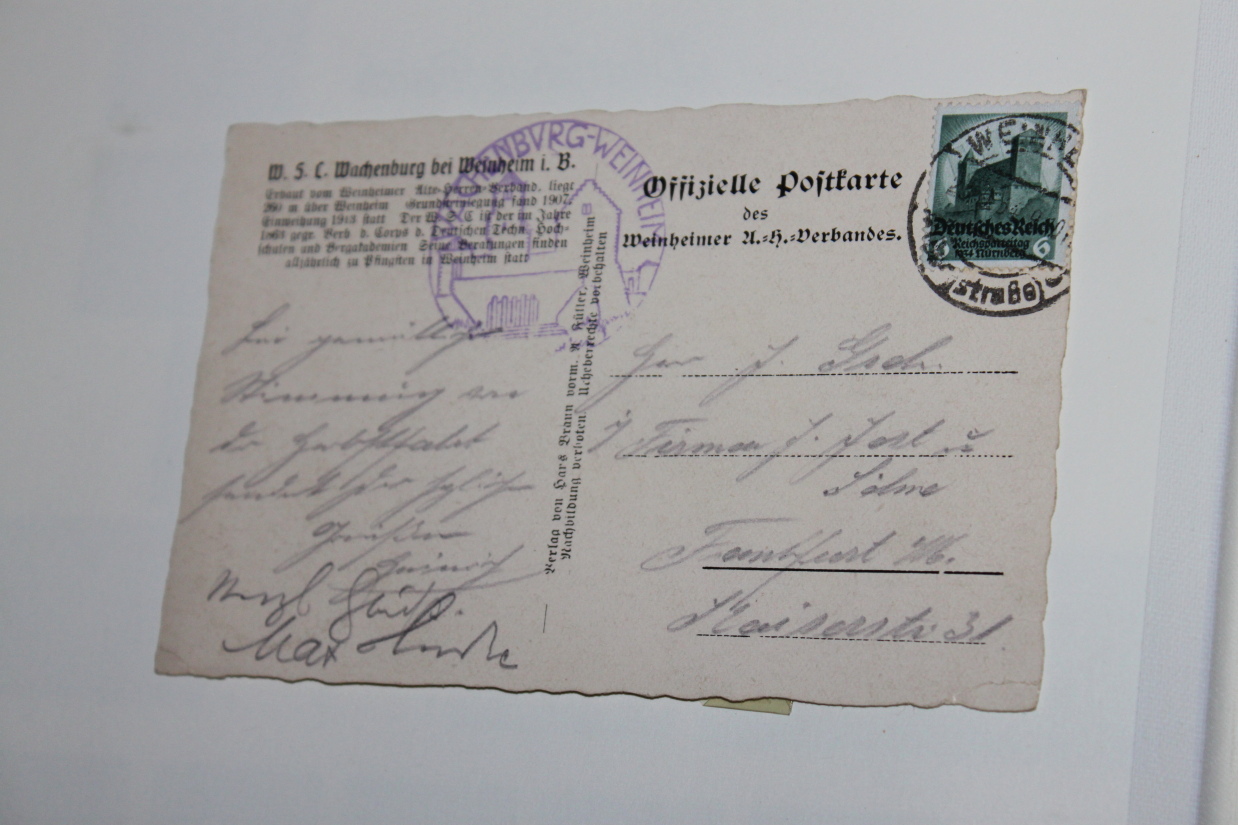 W. S. C. Wachenburg bei Weinheim i. B.
Erbaut vom Weinheimer Alte-Herren-Verband, liegt
m über Weinheim Grundsteinlegung fand 1907,
Einweihung 1913 statt Der W. S. C ist der im Jahre
1863 gegr. Verb d. Corps d. Deutschen Techn. Hoch-
schulen und Bergakademien Seine Beratungen finden
alljährlich zu Pfingsten in Weinheim statt
WACHENBVRG-WEINHEIM
Offizielle Postkarte
des
Weinheimer A.-H.-Verbandes.
WEINHE
(straße)
Deutsches Reich
6 Reichsparteitag 6
1934 Nürnberg
Verlag von Hans Braun vorm. A Hütter, Weinheim
Nachbildung verboten. Urheberrechte vorbehalten
Bei
Stimmung von
der Herbstfahrt
sendet
Heinrich
Max
Herr J.
Firma J.
Söhne
Frankfurt M.
Kaiserstr. 31